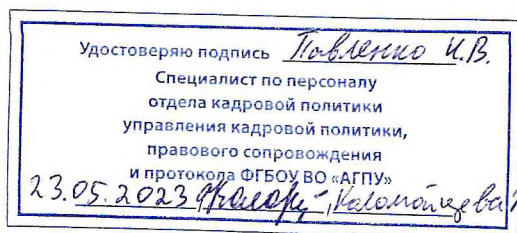 Удостоверяю подпись Павленко И.В.
Специалист по персоналу
отдела кадровой политики
управления кадровой политики,
правового сопровождения
и протокола ФГБОУ ВО «АГПУ»
23.05.2023 Коломайцева